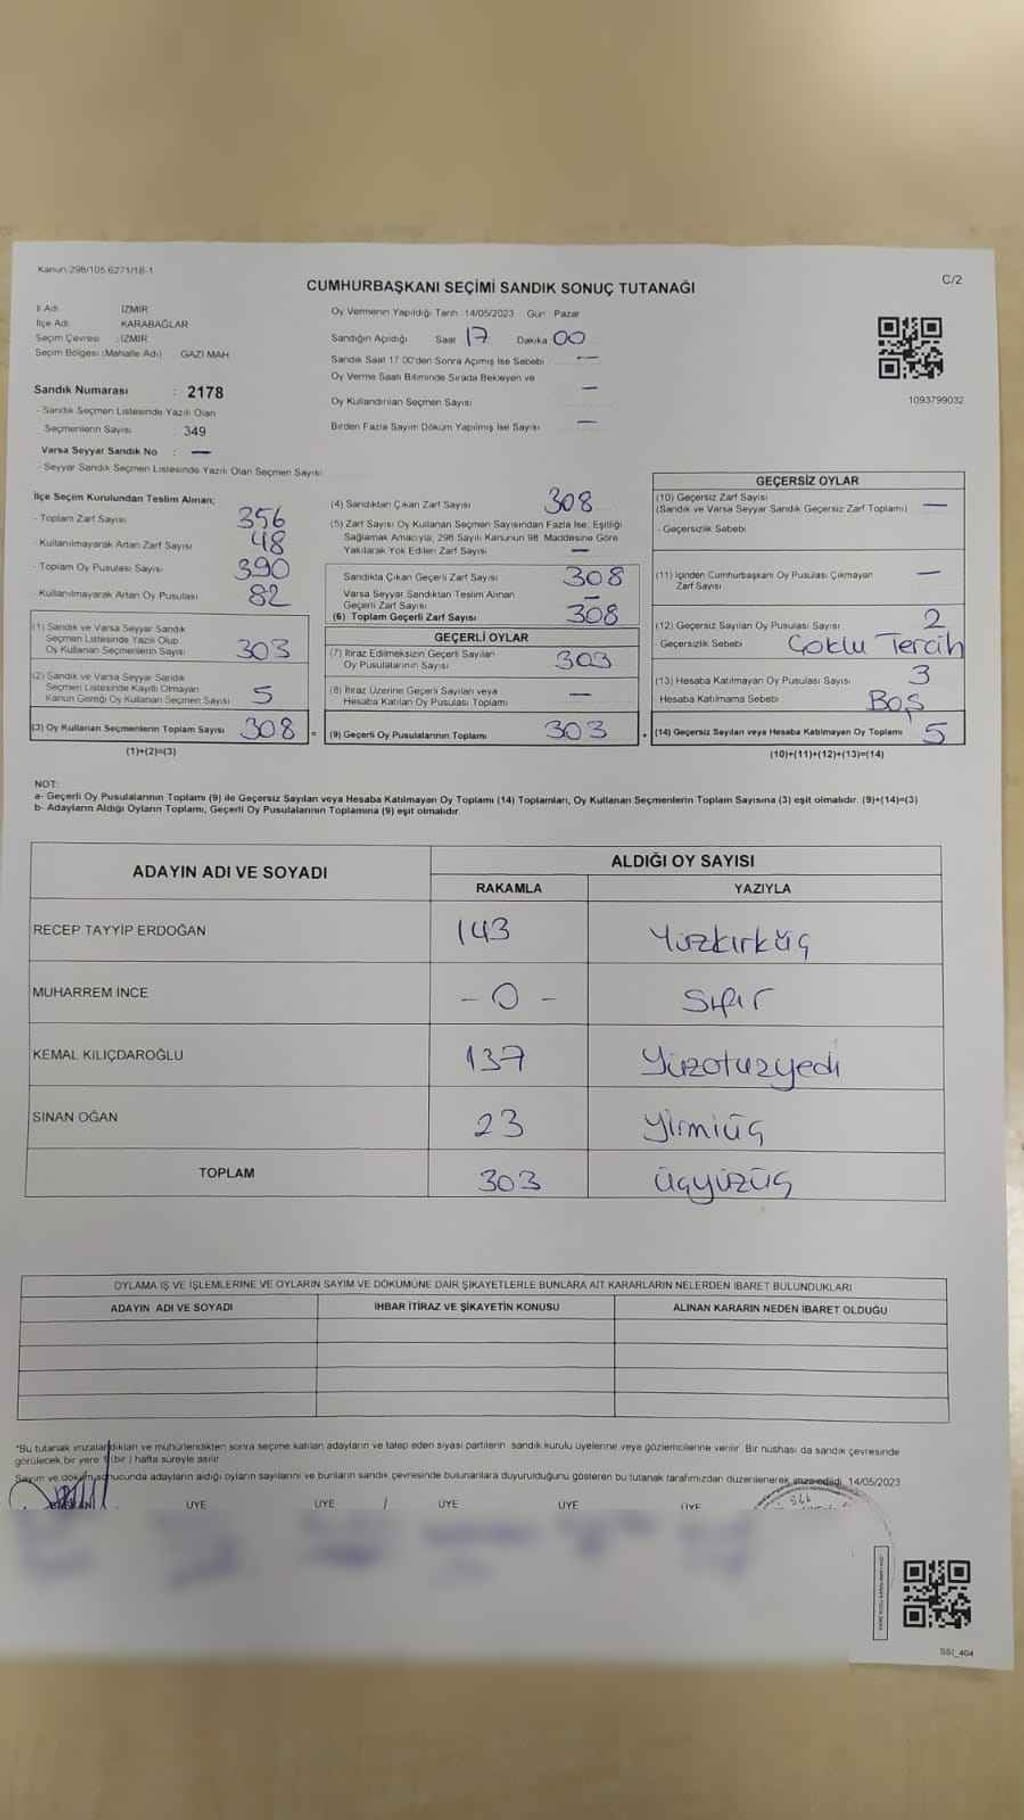 Kanun 298/105 6271/18-1
C/2
CUMHURBAŞKANI SEÇİMİ SANDIK SONUÇ TUTANAĞI
İl Adı : İZMİR
İlçe Adı : KARABAĞLAR
Seçim Çevresi : İZMİR
Seçim Bölgesi (Mahalle Adı) GAZİ MAH
Sandık Numarası : 2178
- Sandık Seçmen Listesinde Yazılı Olan
Seçmenlerin Sayısı : 349
Varsa Seyyar Sandık No : —
- Seyyar Sandık Seçmen Listesinde Yazılı Olan Seçmen Sayısı
Oy Vermenin Yapıldığı Tarih : 14/05/2023 Gün : Pazar
Sandığın Açıldığı Saat 17 Dakika 00
Sandık Saat 17.00'den Sonra Açılmış İse Sebebi —
Oy Verme Saati Bitiminde Sırada Bekleyen ve
Oy Kullandırılan Seçmen Sayısı —
Birden Fazla Sayım Döküm Yapılmış İse Sayısı —
1093799032
İlçe Seçim Kurulundan Teslim Alınan;
- Toplam Zarf Sayısı 356
- Kullanılmayarak Artan Zarf Sayısı 48
- Toplam Oy Pusulası Sayısı 390
- Kullanılmayarak Artan Oy Pusulası 82
(1) Sandık ve Varsa Seyyar Sandık
Seçmen Listesinde Yazılı Olup
Oy Kullanan Seçmenlerin Sayısı 303
(2) Sandık ve Varsa Seyyar Sandık
Seçmen Listesinde Kayıtlı Olmayan
Kanun Gereği Oy Kullanan Seçmen Sayısı 5
(3) Oy Kullanan Seçmenlerin Toplam Sayısı 308
(1)+(2)=(3)
(4) Sandıktan Çıkan Zarf Sayısı 308
(5) Zarf Sayısı Oy Kullanan Seçmen Sayısından Fazla İse, Eşitliği
Sağlamak Amacıyla, 298 Sayılı Kanunun 98. Maddesine Göre
Yakılarak Yok Edilen Zarf Sayısı —
Sandıkta Çıkan Geçerli Zarf Sayısı 308
Varsa Seyyar Sandıktan Teslim Alınan
Geçerli Zarf Sayısı —
(6) Toplam Geçerli Zarf Sayısı 308
GEÇERLİ OYLAR
(7) İtiraz Edilmeksizin Geçerli Sayılan
Oy Pusulalarının Sayısı 303
(8) İtiraz Üzerine Geçerli Sayılan veya
Hesaba Katılan Oy Pusulası Toplamı —
= (9) Geçerli Oy Pusulalarının Toplamı 303
GEÇERSİZ OYLAR
(10) Geçersiz Zarf Sayısı
(Sandık ve Varsa Seyyar Sandık Geçersiz Zarf Toplamı) —
Geçersizlik Sebebi
(11) İçinden Cumhurbaşkanı Oy Pusulası Çıkmayan
Zarf Sayısı —
(12) Geçersiz Sayılan Oy Pusulası Sayısı 2
Geçersizlik Sebebi Çoklu Tercih
(13) Hesaba Katılmayan Oy Pusulası Sayısı 3
Hesaba Katılmama Sebebi Boş
+ (14) Geçersiz Sayılan veya Hesaba Katılmayan Oy Toplamı 5
(10)+(11)+(12)+(13)=(14)
NOT:
a- Geçerli Oy Pusulalarının Toplamı (9) ile Geçersiz Sayılan veya Hesaba Katılmayan Oy Toplamı (14) Toplamları, Oy Kullanan Seçmenlerin Toplam Sayısına (3) eşit olmalıdır. (9)+(14)=(3)
b- Adayların Aldığı Oyların Toplamı, Geçerli Oy Pusulalarının Toplamına (9) eşit olmalıdır.
ADAYIN ADI VE SOYADI
ALDIĞI OY SAYISI
RAKAMLA YAZIYLA
RECEP TAYYİP ERDOĞAN 143 Yüzkırküç
MUHARREM İNCE - 0 - Sıfır
KEMAL KILIÇDAROĞLU 137 Yüzotuzyedi
SİNAN OĞAN 23 Yirmiüç
TOPLAM 303 Üçyüzüç
OYLAMA İŞ VE İŞLEMLERİNE VE OYLARIN SAYIM VE DÖKÜMÜNE DAİR ŞİKAYETLERLE BUNLARA AİT KARARLARIN NELERDEN İBARET BULUNDUKLARI
ADAYIN ADI VE SOYADI İHBAR İTİRAZ VE ŞİKAYETİN KONUSU ALINAN KARARIN NEDEN İBARET OLDUĞU
*Bu tutanak imzalandıktan ve mühürlendikten sonra seçime katılan adayların ve talep eden siyasi partilerin sandık kurulu üyelerine veya gözlemcilerine verilir. Bir nüshası da sandık çevresinde
görülecek bir yere 1 (bir) hafta süreyle asılır.
Sayım ve döküm sonucunda adayların aldığı oyların sayılarını ve bunların sandık çevresinde bulunanlara duyurulduğunu gösteren bu tutanak tarafımızdan düzenlenerek imza edildi. 14/05/2023
ÜYE ÜYE ÜYE ÜYE ÜYE
SSI_404